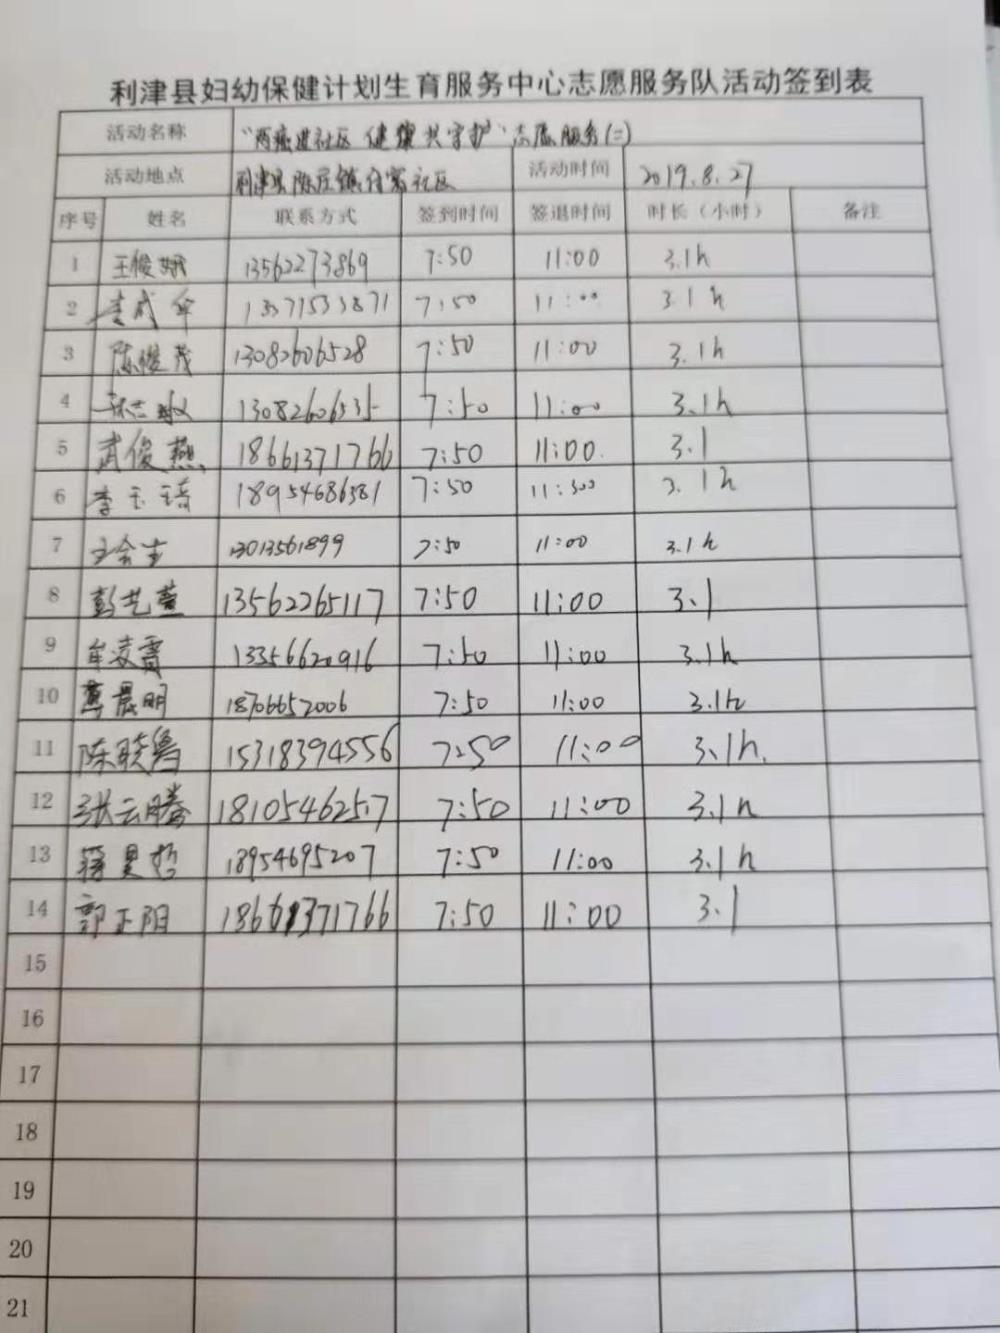 利津县妇幼保健计划生育服务中心志愿服务队活动签到表
活动名称 "两癌进社区 健康共守护"志愿服务(二)
活动地点 利津县陈庄镇 社区 活动时间 2019.8.27
序号 姓名 联系方式 签到时间 签退时间 时长(小时) 备注
1 王俊娥 13562273869 7:50 11:00 3.1h
2 李成 13371533871 7:50 11:00 3.1h
3 陈俊茂 13082606528 7:50 11:00 3.1h
4 7:50 11:00 3.1h
5 武俊燕 18661371766 7:50 11:00. 3.1
6 李玉琦 18954686381 7:50 11:300 3.1h
7 13013561899 7:50 11:00 3.1h
8 彭艺萱 13562265117 7:50 11:00 3.1
9 牟凌霄 13356620916 7:50 11:00 3.1h
10 晨明 18706652006 7:50 11:00 3.1h
11 陈联鲁 15318394556 7:50 11:00 3.1h.
12 张云腾 18105462517 7:50 11:00 3.1h
13 蒋昊哲 18954695207 7:50 11:00 3.1h
14 郭正阳 18661371766 7:50 11:00 3.1
15
16
17
18
19
20
21